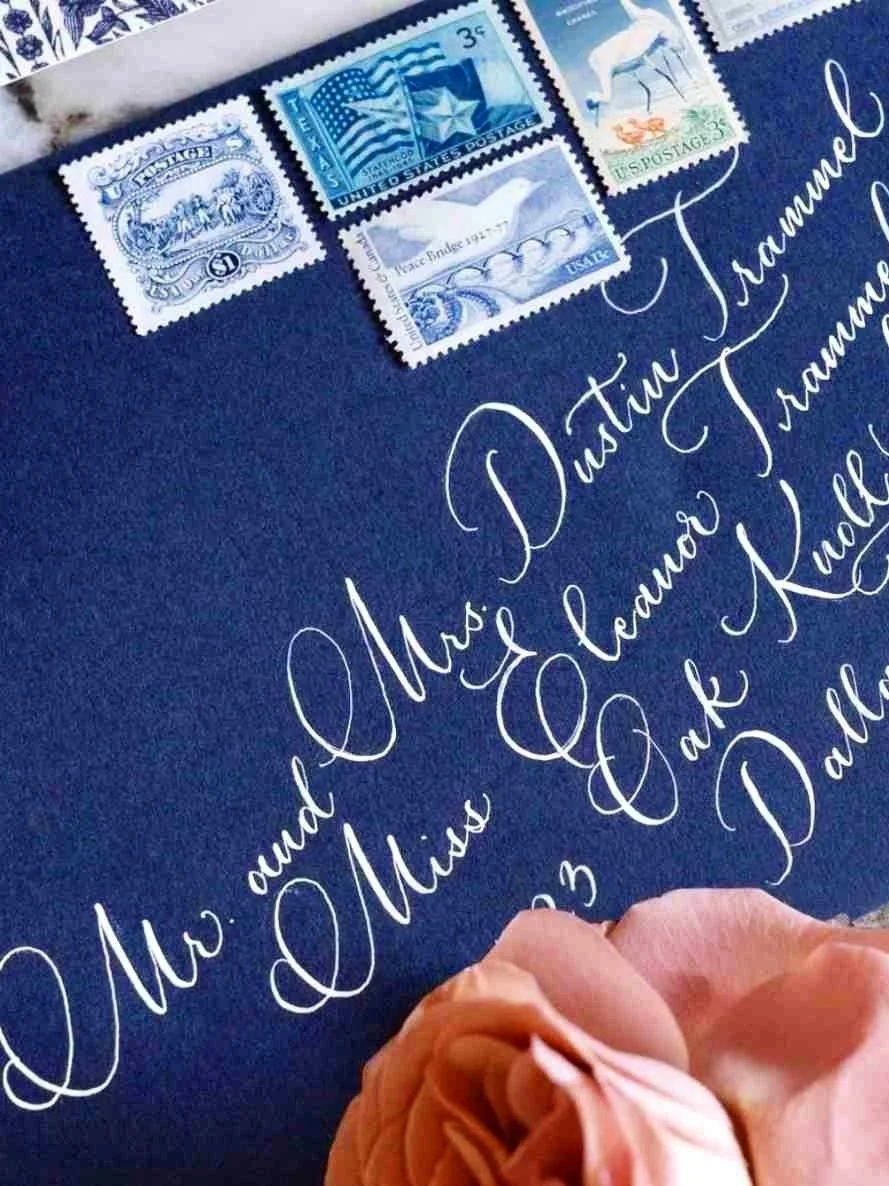 U POSTAGE S
$1
TEXAS
3¢
STATEHOOD
1845-1945
UNITED STATES POSTAGE
United States & Canada
Peace Bridge 1927-77
USA 13c
U.S. POSTAGE 3¢
Mr. and Mrs. Dustin Trammel
Miss Eleanor Tramme
23 Oak Knoll
Dalla